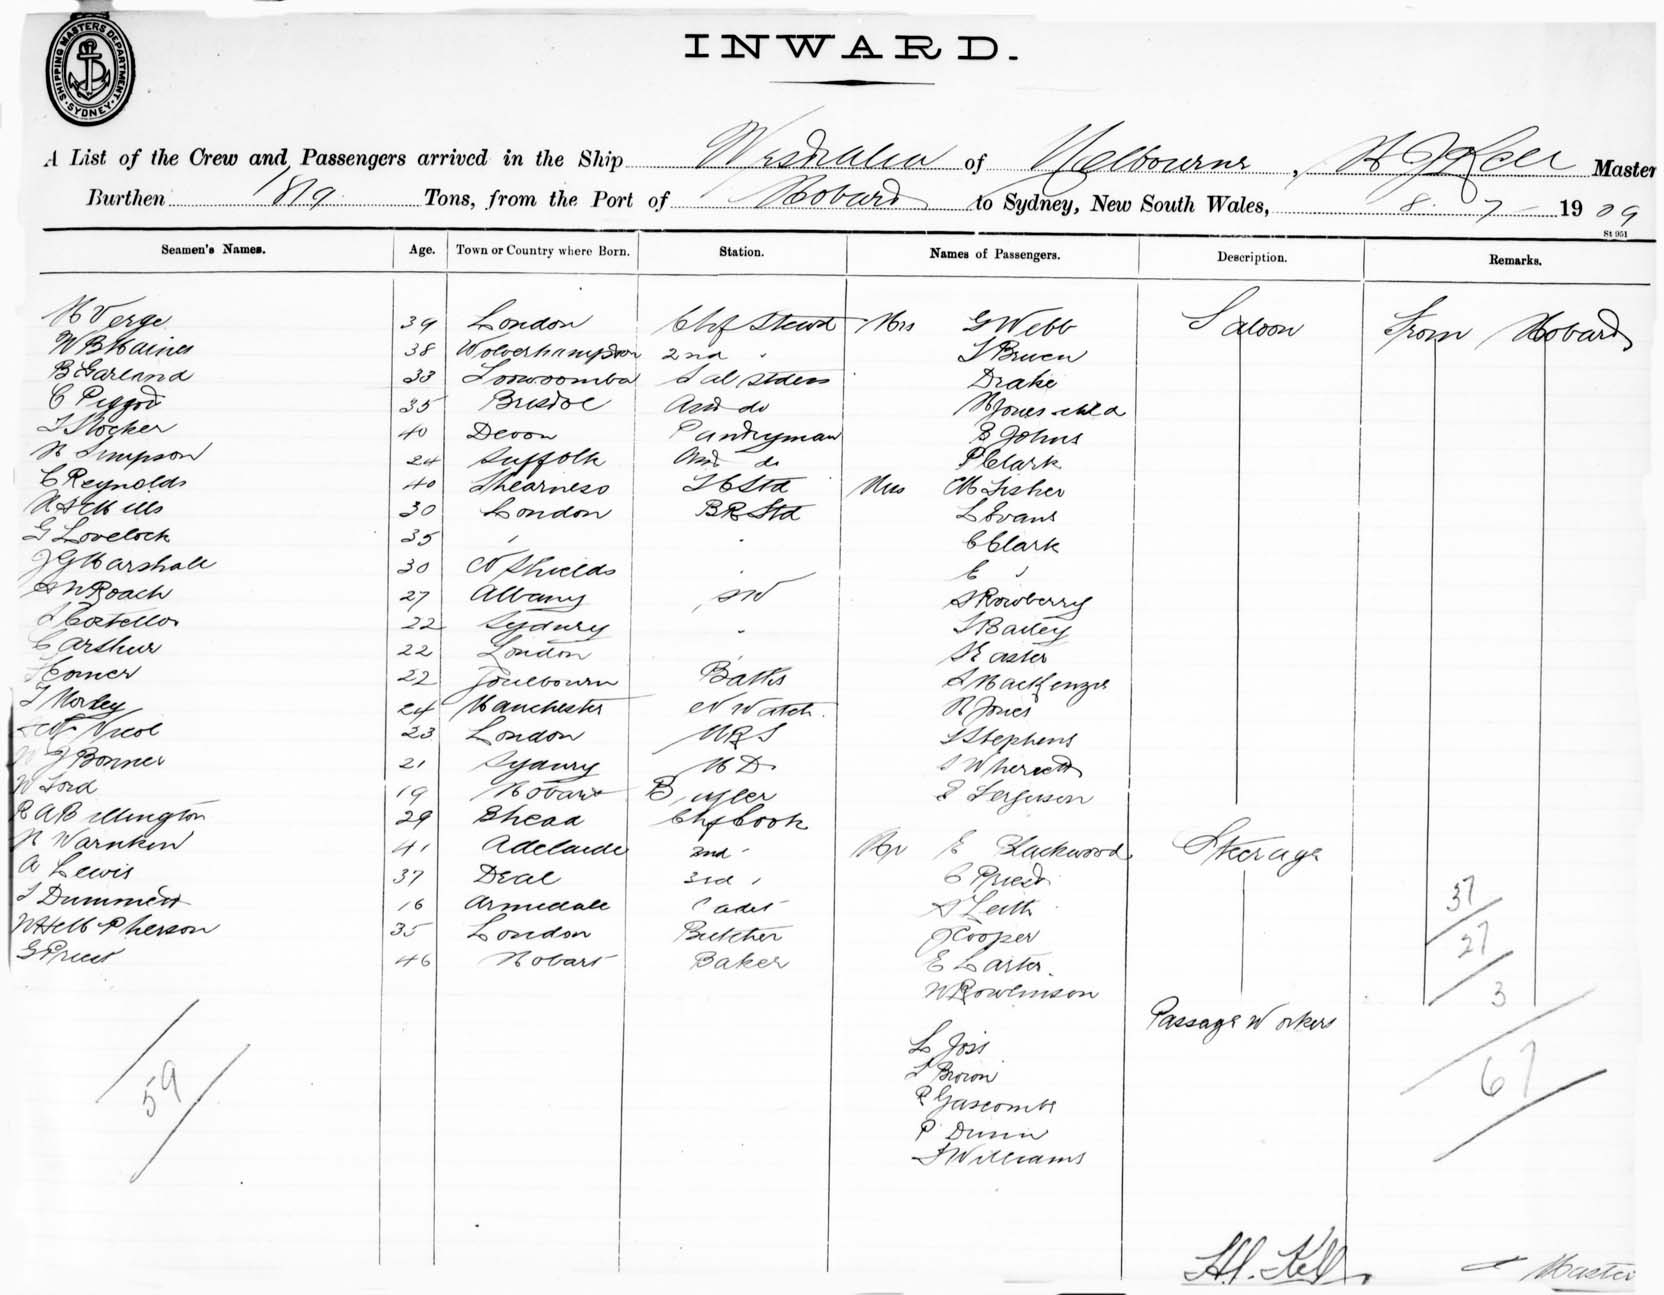 SHIPPING MASTERS DEPARTMENT. SYDNEY.
INWARD.
A List of the Crew and Passengers arrived in the Ship Westralia of Melbourne, H J Kell Master
Burthen 1819 Tons, from the Port of Hobart to Sydney, New South Wales, 8 - 7 - 1909
St 951
Seamen's Names. Age. Town or Country where Born. Station. Names of Passengers. Description. Remarks.
H Verge 39 London Chf Stewd Mrs G Webb Saloon From Hobart
W B Haines 38 Wolverhampton 2nd " Bruen
B Garland 33 Toowoomba Sal Drake
C Piggot 35 Bristol Asst do H Jones child
T Stocker 40 Devon Pantryman B Johns
H Simpson 24 Suffolk Asst do P Clark
C Reynolds 40 Shearness Std Miss M Fisher
Mills 30 London BR Std L Evans
G Lovelock 35 " " C Clark
J G Marshall 30 N Shields " E "
Roach 27 Albany Rowberry
Costello 22 Sydney " Bailey
C Arthur 22 London " Easter
Comer 22 Goulbourn Baths MacKenzie
T Morley 24 Manchester N Watch. H Jones
Nicol 23 London Stephens
W J Bonner 21 Sydney
W Lord 19 Hobart B Ferguson
R A Billington 29 Chf Cook
H Warnken 41 Adelaide 2nd " Mr E Blackwood Steerage
A Lewis 37 Deal 3rd " C Priest 37
Dummett 16 Armidale Cadet Leith
McPherson 35 London Butcher J Cooper 27
G Priest 46 Hobart Baker E Carter.
W Rowlinson 3
Passage Workers
L Joss
Brown 67
59 R Gascombe
P Dunn
Williams
H.J. Kell Master